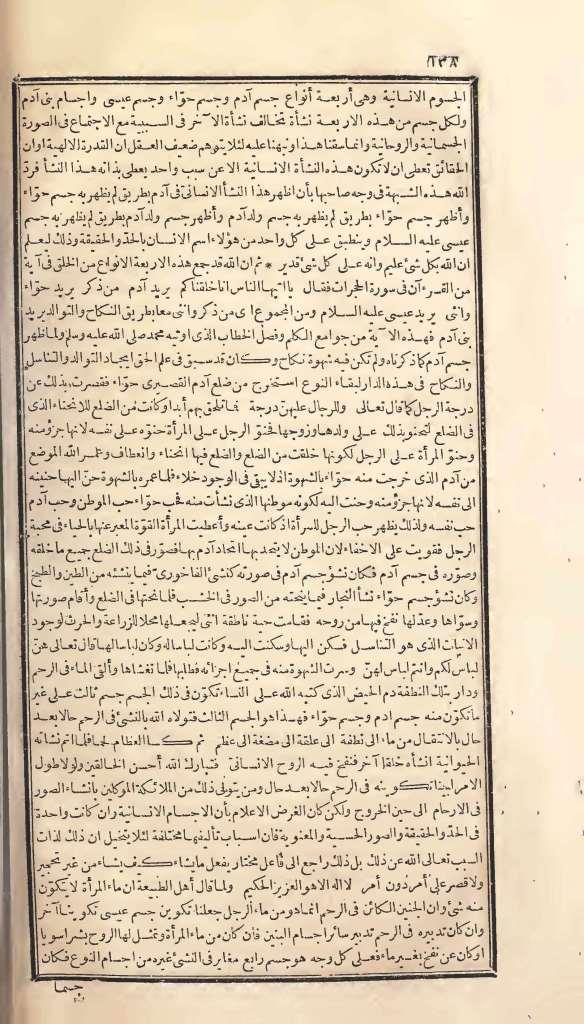 ١٣٨
الجسوم الانسانية وهى أربعة أنواع جسم آدم وجسم حوّاء وجسم عيسى واجسام بنى آدم
ولكل جسم من هذه الاربعة نشأة تخالف نشأة الآخر فى السببية مع الاجتماع فى الصورة
الجسمانية والروحانية وانما سقنا هذا ونبهنا عليه لئلا يتوهم ضعيف العقل ان القدرة الالهية اوان
الحقائق تعطى ان لا تكون هذه النشأة الانسانية الا عن سبب واحد يعطى بذاته هذا النشأ فردّ
الله هذه الشبهة فى وجه صاحبها بأن اظهر هذا النشأ الانسانىّ فى آدم بطريق لم يظهر به جسم حوّاء
وأظهر جسم حوّاء بطريق لم يظهر به جسم ولد آدم وأظهر جسم ولد آدم بطريق لم يظهر به جسم
عيسى عليه السلام وينطبق على كل واحد من هؤلاء اسم الانسان بالحدّ والحقيقة وذلك ليعلم
ان الله بكل شئ عليم وانه على كل شئ قدير * ثم ان الله قد جمع هذه الاربعة الانواع من الخلق فى آية
من القرءآن فى سورة الحجرات فقال يا ايها الناس انا خلقناكم يريد آدم من ذكر يريد حوّاء
وانثى يريد عيسى عليه السلام ومن المجموع اى من ذكر وانثى معا بطريق النكاح والتوالد يريد
بنى آدم فهذه الآية من جوامع الكلم وفصل الخطاب الذى اوتيه محمد صلى الله عليه وسلم ولما ظهر
جسم آدم كما ذكرناه ولم تكن فيه شهوة نكاح وكان قد سبق فى علم الحق ايجاد التوالد والتناسل
والنكاح فى هذه الدار لبقاء النوع استخرج من ضلع آدم القصيرى حوّاء فقصرت بذلك عن
درجة الرجل كما قال تعالى وللرجال عليهنّ درجة فما تلحق بهم أبدا وكانت من الضلع للانحناء الذى
فى الضلع لتحنو بذلك على ولدها وزوجها فحنوّ الرجل على المرأة حنوّه على نفسه لانها جزؤ منه
وحنوّ المرأة على الرجل لكونها خلقت من الضلع والضلع فيها انحناء وانعطاف وعمر الله الموضع
من آدم الذى خرجت منه حوّاء بالشهوة اذ لا يبقى فى الوجود خلاء فلما عمره بالشهوة حنّ اليها حنينه
الى نفسه لانها جزؤ منه وحنت اليه لكونه موطنها الذى نشأت منه فحب حوّاء حب الموطن وحب آدم
حب نفسه ولذلك يظهر حب الرجل للمرأة اذ كانت عينه وأعطيت المرأة القوّة المعبر عنها بالحياء فى محبة
الرجل فقويت على الاخفاء لان الموطن لا يتحد بها اتحاد آدم بها فصوّر فى ذلك الضلع جميع ما خلقه
وصوّره فى جسم آدم فكان نشؤ جسم آدم فى صورته كنشئ الفاخورىّ فيما ينشئه من الطين والطبخ
وكان نشؤ جسم حوّاء نشأ النجار فيما ينحته من الصور فى الخشب فلما نحتها فى الضلع وأقام صورتها
وسوّاها وعدّلها نفخ فيها من روحه فقامت حية ناطقة انثى ليجعلها محلا للزراعة والحرث لوجود
الانبات الذى هو التناسل فسكن اليها وسكنت اليه وكانت لباسا له وكان لباسا لها قال تعالى هنّ
لباس لكم وانتم لباس لهنّ وسرت الشهوة منه فى جميع اجزائه فطلبها فلما تغشاها وألقى الماء فى الرحم
ودار بتلك النطفة دم الحيض الذى كتبه الله على النساء تكوّن فى ذلك الجسم جسم ثالث على غير
ما تكوّن منه جسم ادم وجسم حوّاء فهذا هو الجسم الثالث فتولاه الله بالنشئ فى الرحم حالا بعد
حال بالانتقال من ماء الى نطفة الى علقة الى مضغة الى عظم ثم كسا العظام لحما فلما اتم نشأته
الحيوانية انشأه خلقا آخر فنفخ فيه الروح الانسانىّ فتبارك الله أحسن الخالقين ولولا طول
الامر لبينا تكوينه فى الرحم حالا بعد حال ومن يتولى ذلك من الملائكة الموكلين بانشاء الصور
فى الارحام الى حين الخروج ولكن كان الغرض الاعلام بأن الاجسام الانسانية وان كانت واحدة
فى الحدّ والحقيقة والصور الحسية والمعنوية فان اسباب تأليفها مختلفة لئلا يتخيل ان ذلك لذات
السبب تعالى الله عن ذلك بل ذلك راجع الى فاعل مختار يفعل ما يشاء كيف يشاء من غير تحجير
ولا قصر على أمر دون أمر لا اله الا هو العزيز الحكيم ولما قال أهل الطبيعة ان ماء المرأة لا يتكوّن
منه شئ وان الجنين الكائن فى الرحم انما هو من ماء الرجل جعلنا تكوين جسم عيسى تكوينا آخر
وان كان تدبيره فى الرحم تدبير سائر اجسام البنين فان كان من ماء المرأة وتمثل لها الروح بشرا سويا
او كان عن نفخ بغير ماء فعلى كل وجه هو جسم رابع مغاير فى النشئ غيره من اجسام النوع فكان
جسما